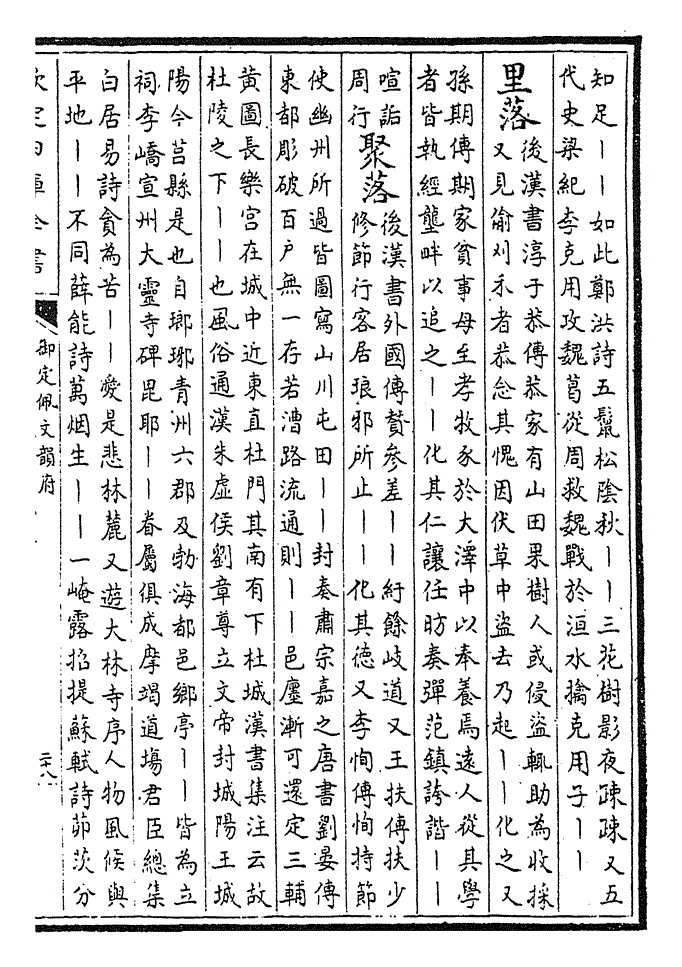 知足丨丨如此鄭洪詩五鬣松陰秋丨丨三花樹影夜疎疎又五
代史梁紀李克用攻魏葛從周救魏戰於洹水擒克用子丨丨
里落
後漢書淳于恭傳恭家有山田果樹人或侵盜輒助為收採
又見偷刈禾者恭念其愧因伏草中盜去乃起丨丨化之又
孫期傳期家貧事母至孝牧豕於大澤中以奉養焉遠人從其學
者皆執經壟畔以追之丨丨化其仁讓任昉奏彈范鎮誇諧丨丨
喧詬
周行
聚落
後漢書外國傳贊參差丨丨紆餘岐道又王扶傳扶少
修節行客居琅邪所止丨丨化其德又李恂傳恂持節
使幽州所過皆圖寫山川屯田丨丨封奏肅宗嘉之唐書劉晏傳
東都彫破百户無一存若漕路流通則丨丨邑廛漸可還定三輔
黄圖長樂宫在城中近東直杜門其南有下杜城漢書集注云故
杜陵之下丨丨也風俗通漢朱虚侯劉章尊立文帝封城陽王城
陽今莒縣是也自瑯琊青州六郡及勃海都邑鄉亭丨丨皆為立
祠李嶠宣州大靈寺碑毘耶丨丨眷屬俱成摩竭道塲君臣總集
白居易詩貪為苦丨丨愛是悲林麓又遊大林寺序人物風候與
平地丨丨不同薛能詩萬烟生丨丨一崦露招提蘇軾詩茆茨分
欽定四庫全書
御定佩文韻府
二十八